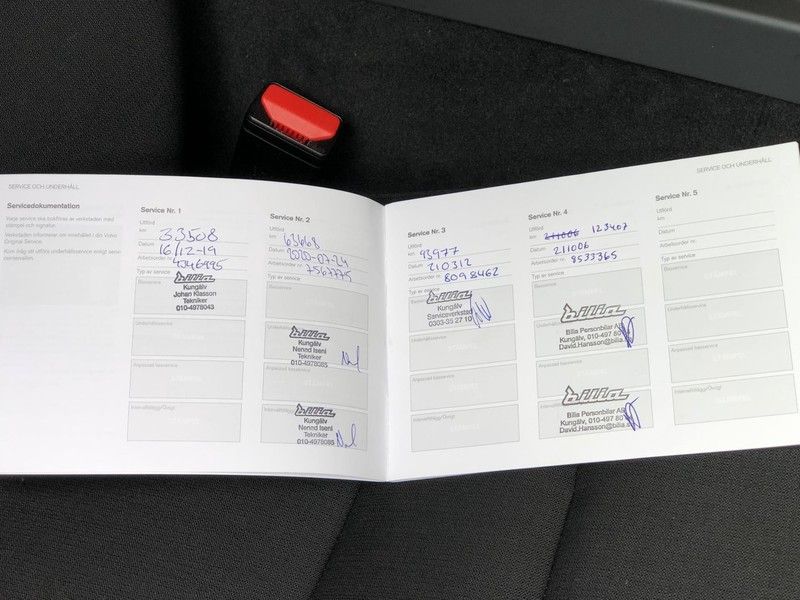 SERVICE OCH UNDERHÅLL
Servicedokumentation
Varje service ska bokföras av verkstaden med
stämpel och signatur.
Verkstaden informerar om innehållet i din Volvo
Original Service.
Kom ihåg att utföra underhållsservice enligt
Service Nr. 1
Utförd
km 33508
Datum 16/12-19
Arbetsorder nr.
Typ av service
Basservice
bilia
Kungälv
Johan Klasson
Tekniker
010-4978043
Underhållsservice
Anpassad basservice
Intervalltillägg/Övrigt
Service Nr. 2
Utförd
km 63668
Datum 2020-07-24
Arbetsorder nr. 7567775
Typ av service
Basservice
Underhållsservice
bilia
Kungälv
Nennd Iseni
Tekniker
010-4978085
Anpassad basservice
Intervalltillägg/Övrigt
bilia
Kungälv
Nennd Iseni
Tekniker
010-4978085
Service Nr. 3
Utförd
km 93977
Datum 210312
Arbetsorder nr. 8098462
Typ av service
Basservice
bilia
Kungälv
Serviceverkstad
0303-35 27 10
Underhållsservice
Anpassad basservice
Intervalltillägg/Övrigt
SERVICE OCH UNDERHÅLL
Service Nr. 4
Utförd
km 211006 123407
Datum 211006
Arbetsorder nr. 8533365
Typ av service
Basservice
Underhållsservice
bilia
Bilia Personbilar AB
Kungälv, 010-497 80
David.Hansson@bilia.s
Anpassad basservice
Intervalltillägg/Övrigt
bilia
Bilia Personbilar AB
Kungälv, 010-497 80
David.Hansson@bilia.s
Service Nr. 5
Utförd
km
Datum
Arbetsorder nr.
Typ av service
Basservice
Underhållsservice
Anpassad basservice
Intervalltillägg/Övrigt